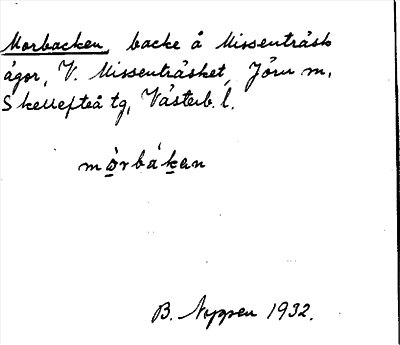 Morbacken, backe å Missenträsk
ägor, V. Missenträsket, Jörn m,
Skellefteå tg, Västerb. l.
mòrbákan
B. Nyggren 1932.